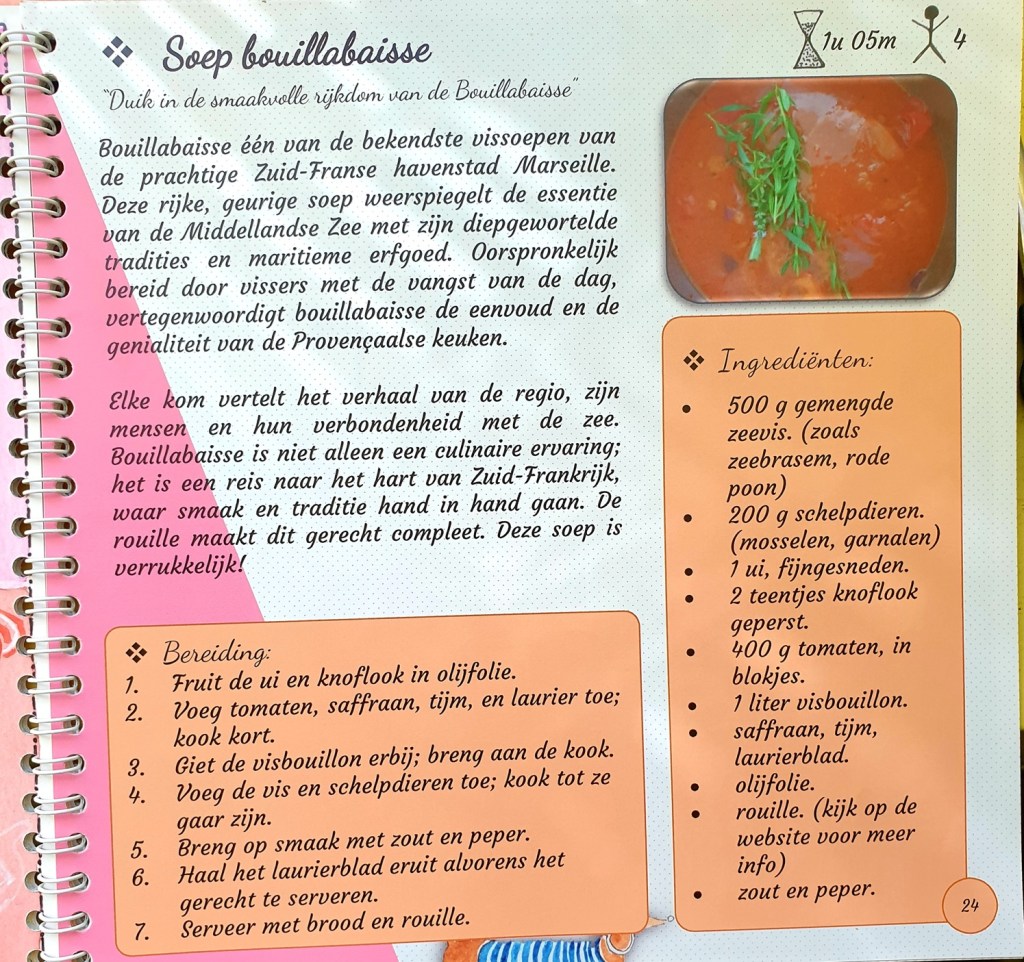 Soep bouillabaisse
1u 05m
4
"Duik in de smaakvolle rijkdom van de Bouillabaisse"
Bouillabaisse één van de bekendste vissoepen van
de prachtige Zuid-Franse havenstad Marseille.
Deze rijke, geurige soep weerspiegelt de essentie
van de Middellandse Zee met zijn diepgewortelde
tradities en maritieme erfgoed. Oorspronkelijk
bereid door vissers met de vangst van de dag,
vertegenwoordigt bouillabaisse de eenvoud en de
genialiteit van de Provençaalse keuken.
Elke kom vertelt het verhaal van de regio, zijn
mensen en hun verbondenheid met de zee.
Bouillabaisse is niet alleen een culinaire ervaring;
het is een reis naar het hart van Zuid-Frankrijk,
waar smaak en traditie hand in hand gaan. De
rouille maakt dit gerecht compleet. Deze soep is
verrukkelijk!
Bereiding:
1. Fruit de ui en knoflook in olijfolie.
2. Voeg tomaten, saffraan, tijm, en laurier toe;
kook kort.
3. Giet de visbouillon erbij; breng aan de kook.
4. Voeg de vis en schelpdieren toe; kook tot ze
gaar zijn.
5. Breng op smaak met zout en peper.
6. Haal het laurierblad eruit alvorens het
gerecht te serveren.
7. Serveer met brood en rouille.
Ingrediënten:
• 500 g gemengde
zeevis. (zoals
zeebrasem, rode
poon)
• 200 g schelpdieren.
(mosselen, garnalen)
• 1 ui, fijngesneden.
• 2 teentjes knoflook
geperst.
• 400 g tomaten, in
blokjes.
• 1 liter visbouillon.
• saffraan, tijm,
laurierblad.
• olijfolie.
• rouille. (kijk op de
website voor meer
info)
• zout en peper.
24